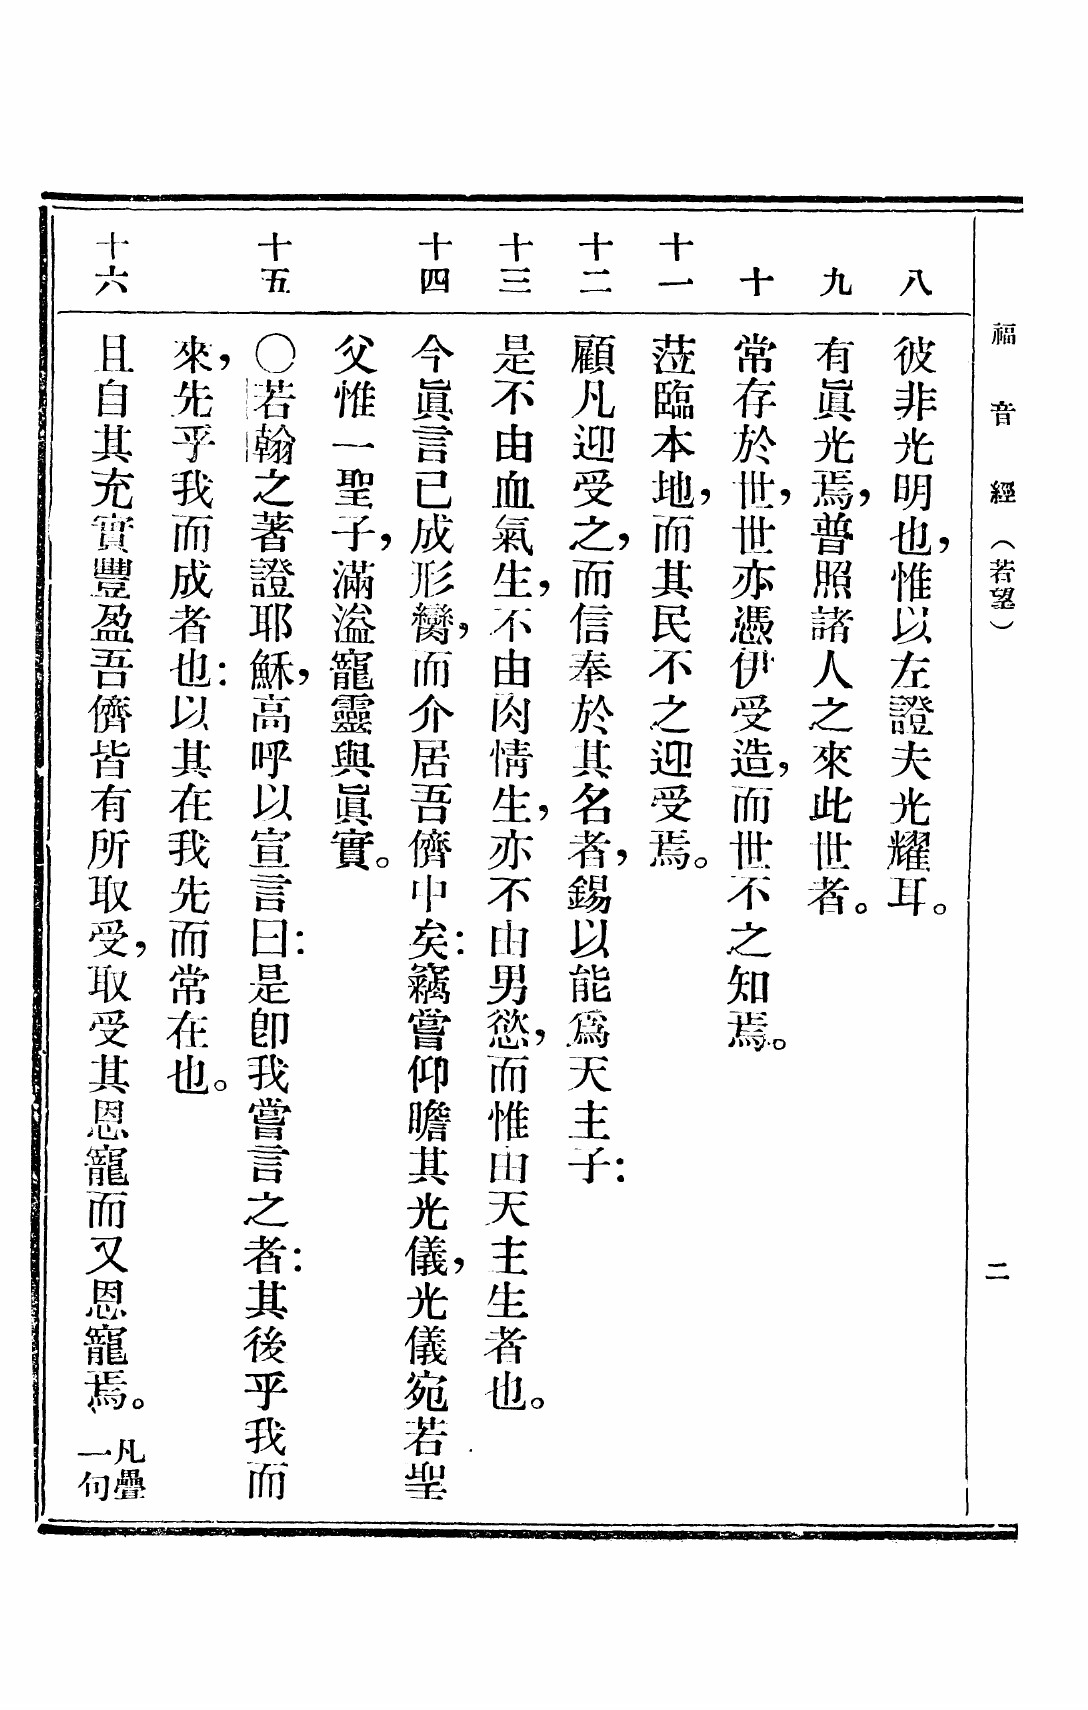 福音經（若望）　二
八　彼非光明也，惟以左證夫光耀耳。
九　有眞光焉，普照諸人之來此世者。
十　常存於世，世亦憑伊受造，而世不之知焉。
十一　蒞臨本地，而其民不之迎受焉。
十二　顧凡迎受之，而信奉於其名者，錫以能爲天主子：
十三　是不由血氣生，不由肉情生，亦不由男慾，而惟由天主生者也。
十四　今眞言已成形臠，而介居吾儕中矣：竊嘗仰瞻其光儀，光儀宛若聖
父惟一聖子，滿溢寵靈與眞實。
十五　〇若翰之著證耶穌，高呼以宣言曰：是卽我嘗言之者：其後乎我而
來，先乎我而成者也：以其在我先而常在也。
十六　且自其充實豐盈吾儕皆有所取受，取受其恩寵而又恩寵焉。凡疊
一句